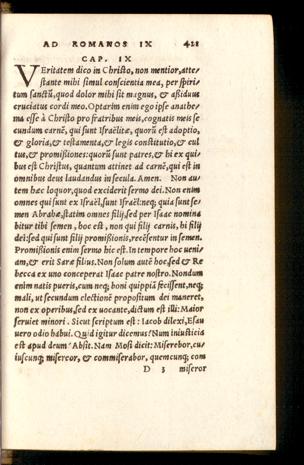 AD ROMANOS IX 421
CAP. IX
VEritatem dico in Christo, non mentior, atte⸗
stante mihi simul conscientia mea, per spiri⸗
tum sanctũ, quod dolor mihi sit magnus, & aßiduus
cruciatus cordi meo. Optarim enim ego ipse anathe⸗
ma esse à Christo pro fratribus meis, cognatis meis se
cundum carnẽ, qui sunt Israëlitæ, quorũ est adoptio,
& gloria, & testamenta, & legis constitutio, & cul
tus, & promißiones: quorũ sunt patres, & hi ex qui⸗
bus est Christus, quantum attinet ad carnẽ, qui est in
omnibus deus laudandus in secula. Amen. Non au⸗
tem hæc loquor, quod exciderit sermo dei. Non enim
omnes qui sunt ex Israël, sunt Israël: neq; quia sunt se⸗
men Abrahæ, statim omnes filij, sed per Isaac nomina
bitur tibi semen, hoc est, non qui filij carnis, hi filij
dei: sed qui sunt filij promißionis, recẽsentur in semen.
Promißionis enim sermo hic est. In tempore hoc ueni⸗
am, & erit Saræ filius. Non solum autẽ hoc, sed & Re
becca ex uno conceperat Isaac patre nostro. Nondum
enim natis pueris, cum neq; boni quippiã fecissent, neq;
mali, ut secundum electionẽ propositum dei maneret,
non ex operibus, sed ex uocante, dictum est illi: Maior
seruiet minori. Sicut scriptum est: Iacob dilexi, Esau
uero odio habui. Quid igitur dicemus? Num iniusticia
est apud deum? Absit. Nam Mosi dicit: Miserebor, cu⸗
iuscunq; misereor, & commiserabor, quemcunq; com
D 3 miseror